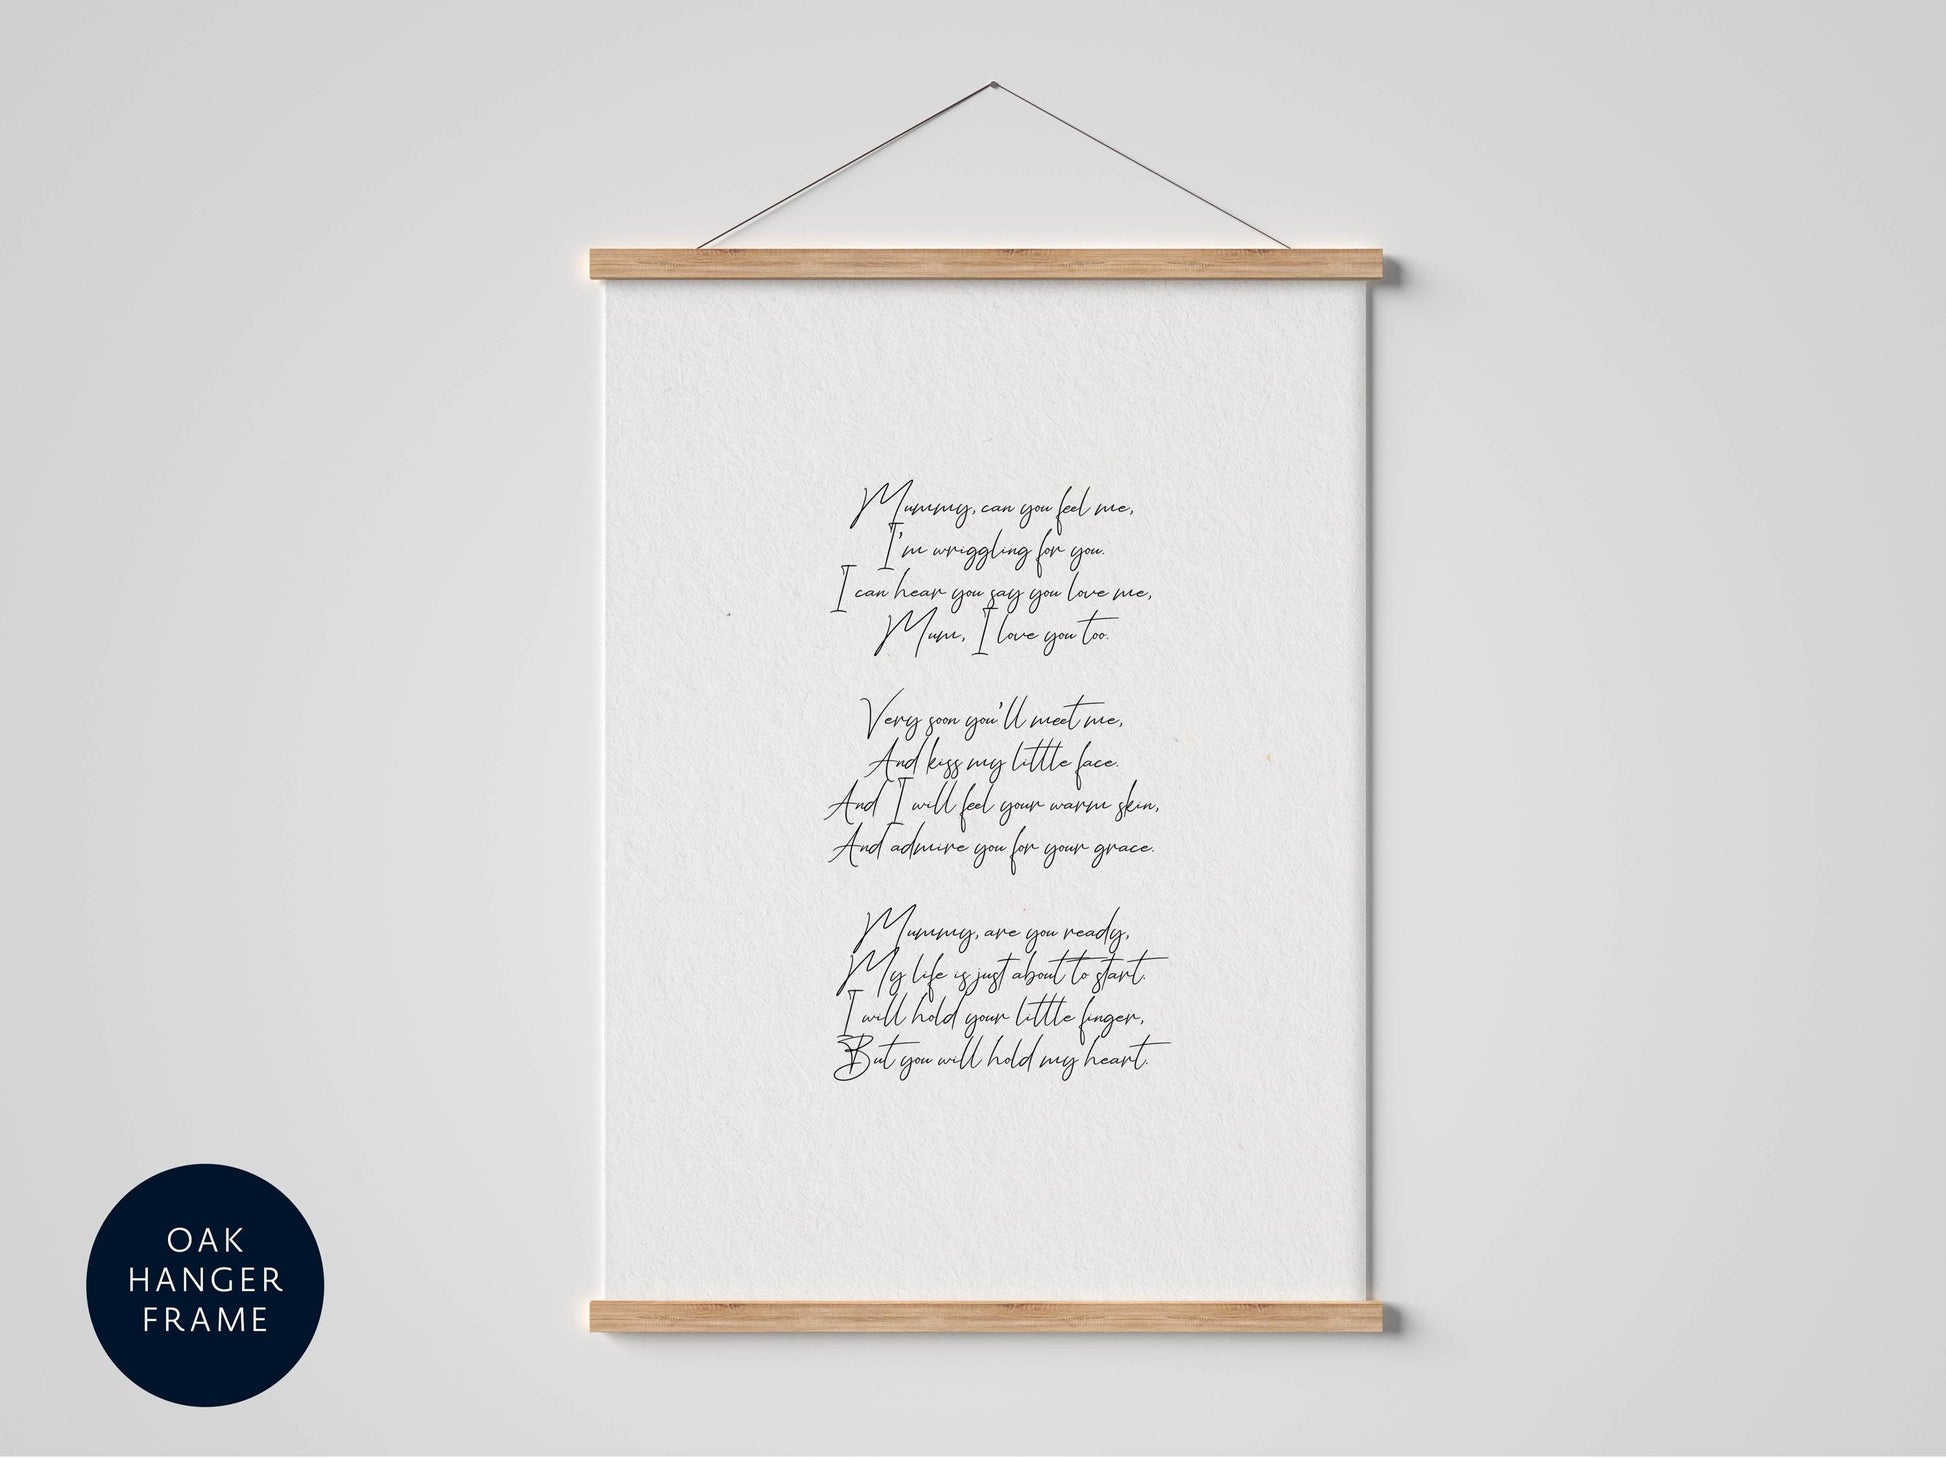 Mummy, can you feel me,
I'm wriggling for you.
I can hear you say you love me,
Mum, I love you too.
Very soon you'll meet me,
And kiss my little face.
And I will feel your warm skin,
And admire you for your grace.
Mummy, are you ready,
My life is just about to start.
I will hold your little finger,
But you will hold my heart.
OAK
HANGER
FRAME